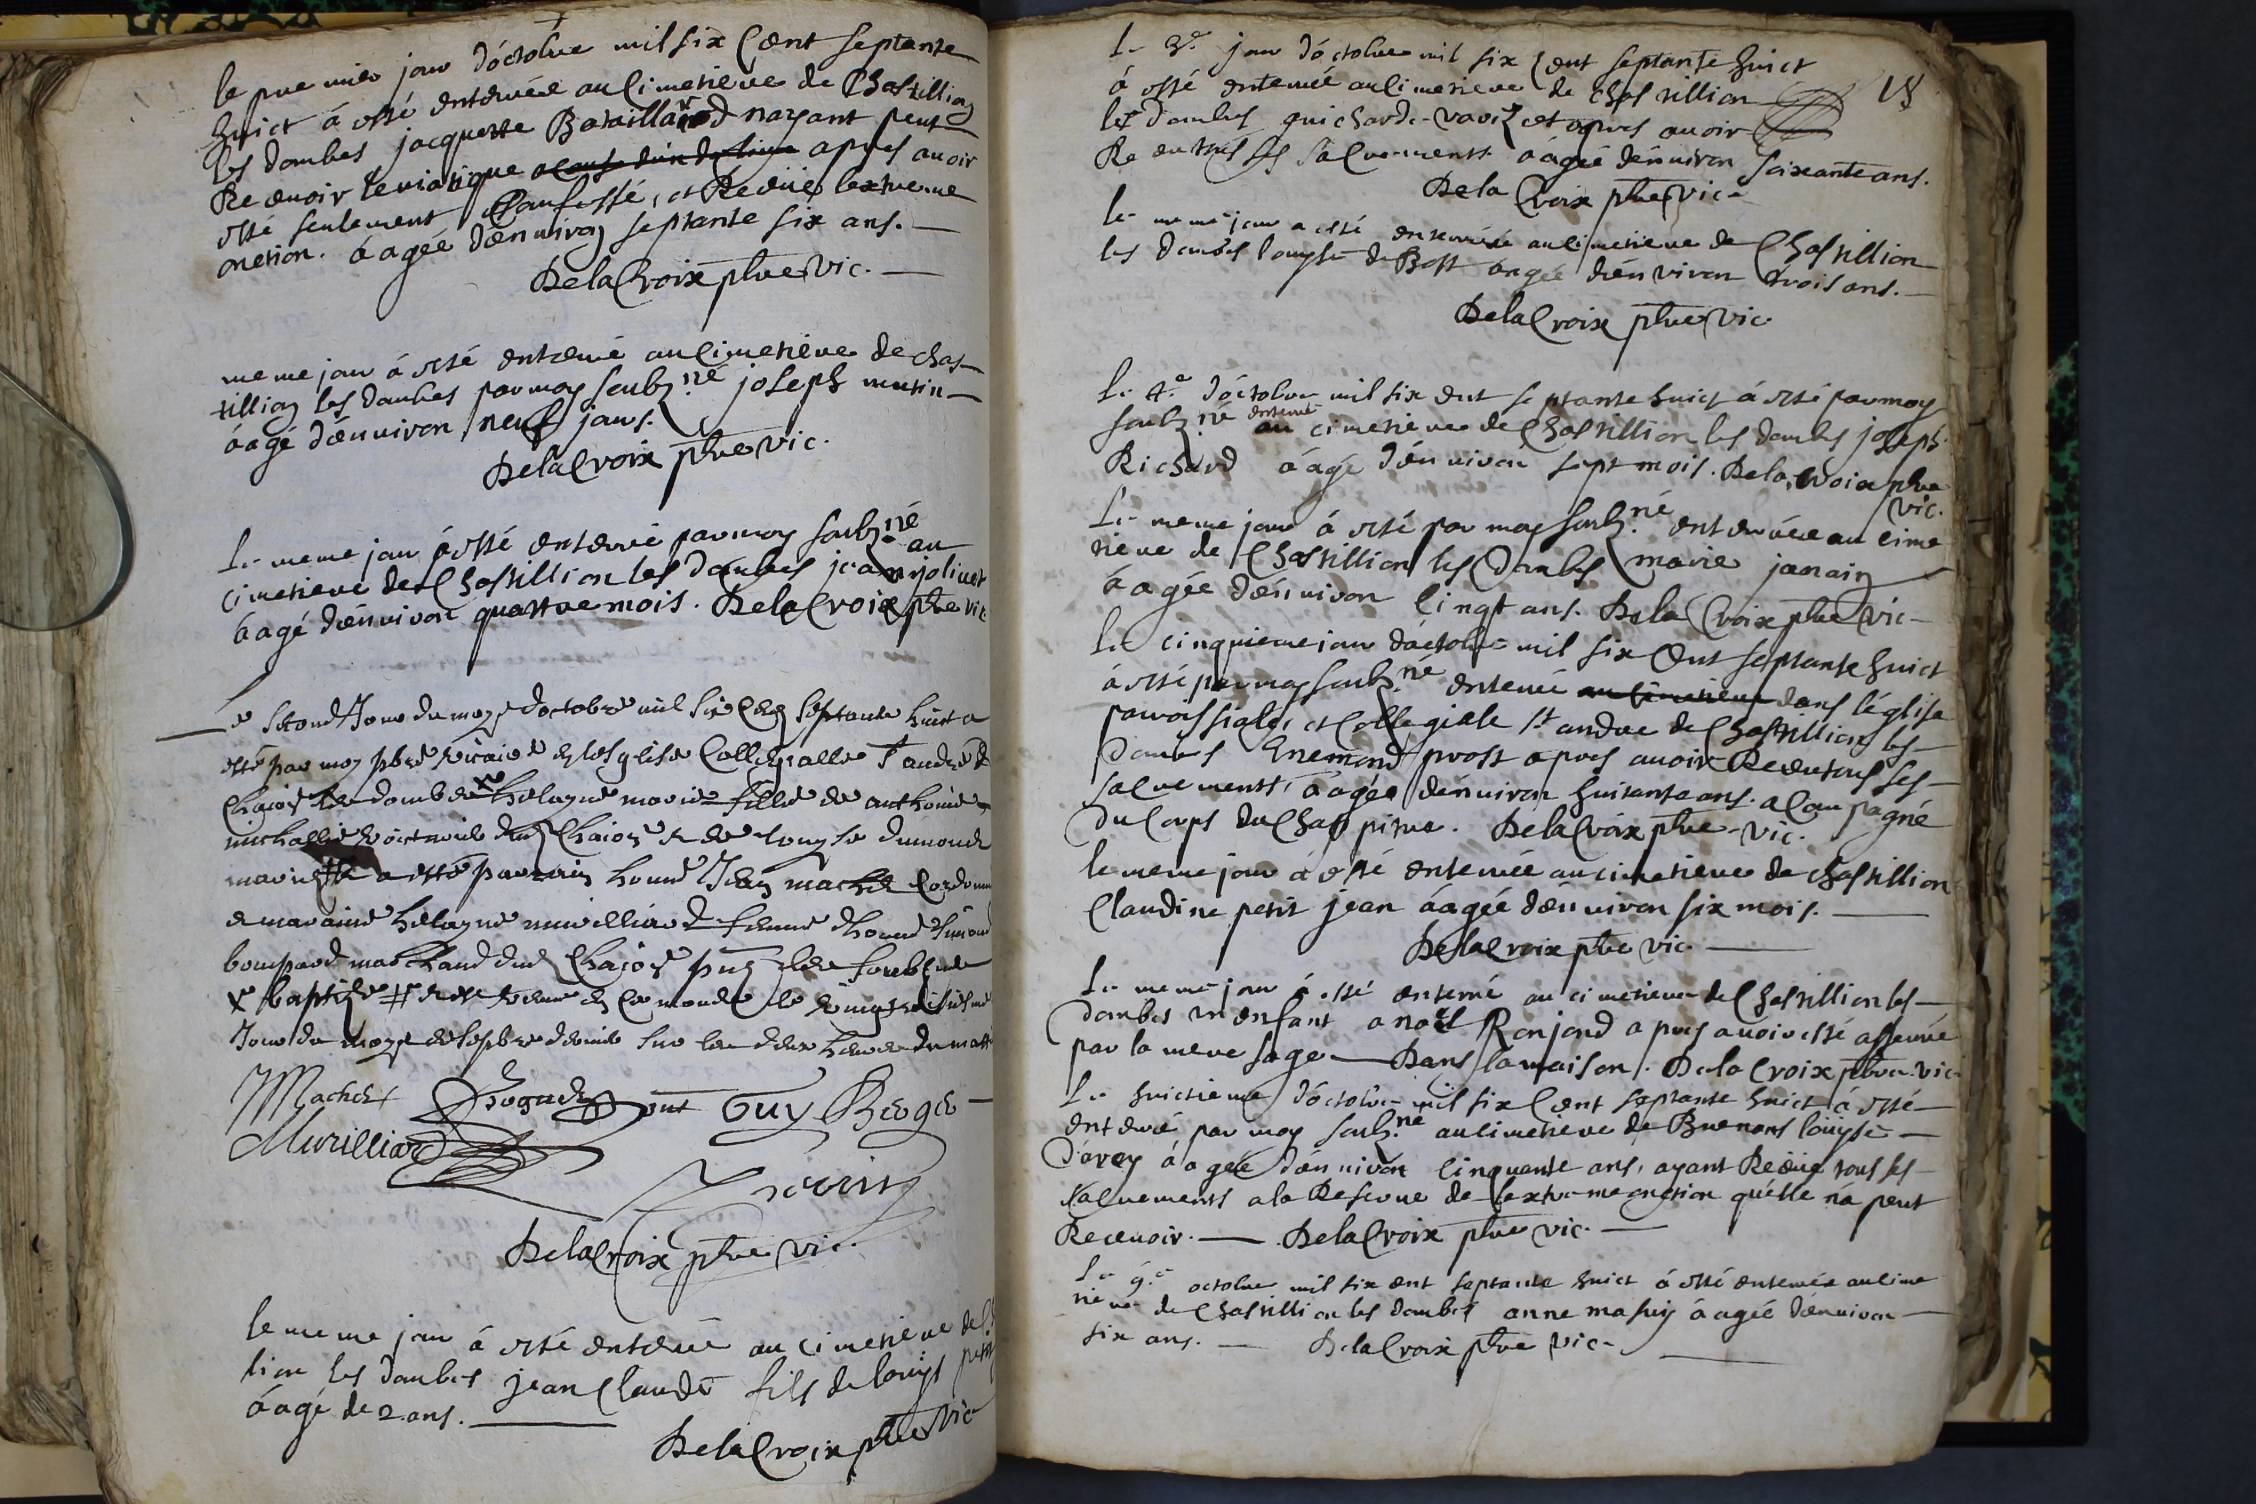 le premier jour d'octobre mil six Cent septante
huict à esté enterrée au Cimetiere de Chastillion
les dombes jacquette Bataillard nayant peut
Recevoir le viatique apres avoir
esté seulement Confessé, et Receüe lextreme
onction. áagée d'enuiron septante six ans.
De la Croix pbre Vic.
meme jour à esté enterré au Cimetiere de chas-
tillion les dombes par moy soubz.né joseph mutin
áagé d'enuiron neuf jours.
De la Croix pbre vic.
Le meme jour à esté enterré par moy soubz.né au
Cimetiere de Chastillion les dombes jean joliuet
áagé d'enuiron quattre mois. De la Croix pbre vic
Le second Jour du moys d'octobre mil six Cens septante huict a
esté par moy pbre vicaire en lesglise Collegialle St andre de
Chaion les dombes helayne marie fille de anthoine
michallie dud Chaion & de Louyse dumonde
maries a esté parrain honn Jean machet Cordonn
& maraine helayne murilliard femme d'honn simond
bompard marchand dud Chaion pns les soubz
baptize # en ce monde le
Jour du moys de sepbre dernier sur les deux heures du matt
Machet Guy Berger
Murilliard
De la Croix pbre vic.
le meme jour à esté enterré au cimetiere de
lion les dombes jean Claude fils de louys petit
áagé de 2 ans.
De la Croix pbre Vic
Le 3e jour d'octobre mil six Cent septante huict
à esté enterrée au Cimetiere de Chastillion
les dombes guicharde et apres auoir
Receu tous ses sacrements áagée d'enuiron soixante ans.
De la Croix pbre Vic
le meme jour a esté enterrée au Cimetiere de Chastillion
les dombes louyse de Bost áagée d'enuiron trois ans.
De la Croix pbre Vic
Le 4e d'octobre mil six cent septante huict à esté par moy
soubz.né enterré au cimetiere de Chastillion les dombes joseph
Richard áagé d'enuiron sept mois. De la Croix pbre
vic.
Le meme jour à esté par moy soubz.né enterrée au cime
tiere de Chastillion les Dombes marie janain
áagée d'enuiron Cinqt ans. De la Croix pbre Vic
Le cinquieme jour d'octobre mil six Cent septante huict
à esté par moy soubz.né enterré au Cimetiere dans léglise
parroissiale, et Collegiale St andre de Chastillion les
dombes Enemond prost apres auoir Receu tous ses
sacrements, áagée d'enuiron huitante ans. aCompagné
du Corps du Chappitre. De la Croix pbre Vic.
le meme jour à esté enterrée au cimetiere de chastillion
Claudine petit jean áagée d'enuiron six mois.
De la Croix pbre vic
Le meme jour à esté enterré au cimetiere de Chastillion les
dombes un enfant a noël Ronjond apres auoir esté asseuré
par la mere sage Dans la maison. De la Croix pbre. vic
Le huictieme d'octobre mil six Cent septante huict à esté
enterré par moy soubz.né au Cimetiere de Buenans louyse
d'arcy áagée d'enuiron Cinquante ans, ayant Receüe tous ses
sacrements a la Reserue de l'extreme onction qu'elle n'a peut
Receuoir. De la Croix pbre vic.
Le 9.e octobre mil six cent septante huict à esté enterrée au Cime
tiere de Chastillion les dombes anne masuy áagée d'enuiron
six ans. De la Croix pbre Vic